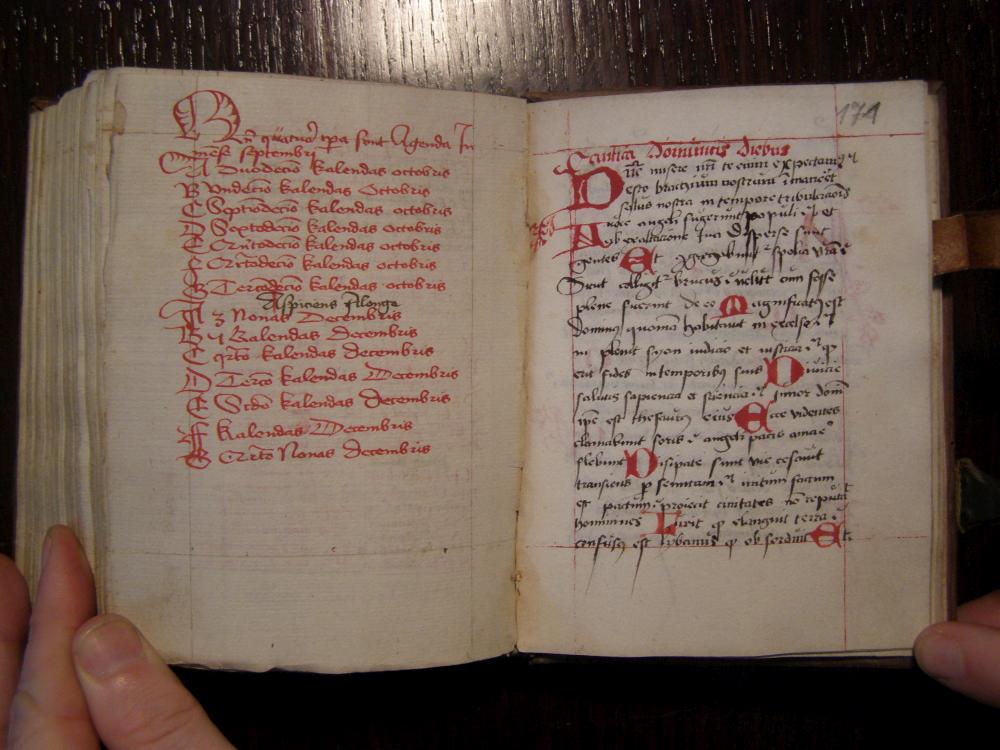 sunt Agenda In
mense septembri
A Duodecio kalendas octobris
B Undecio kalendas Octobris
C Septiodecio kalendas octobris
D Sextodecio kalendas octobris
E kalendas octobris
kalendas octobris
G Tercodecio kalendas octobris
Aspiciens Alonge
A 3 Nonas Decembris
B 4 Kalendas Decembris
C qrto kalendas decembris
D Terco kalendas Decembris
E Scdo kalendas decembris
F kalendas Decembris
G Nonas decembris
174
Cantica Dominicis diebus
Dne misere nri te enim expectauimus
esto brachium nostrum i maneet
salus nostra in tempore tribulacionis
A uoce angeli fugerunt populi et
ab exaltacione tua disperse sunt
gentes Et spolia vra
Sicut colligit brucus velut cum fosse
plene fuerint de eo Magnificatus est
dominus quoniam habitauit in excelso
impleuit syon iudicio et iusticia
erit fides in temporibus suis Diuicie
salutis sapiencia et sciencia timor domini
ipse est thesaurus eius Ecce videntes
clamabunt foris angeli pacis amare
flebunt Dissipate sunt vie cessauit
transiens p semitam irritum factum
est pactum proiecit ciuitates no reputauit
homines Luxit et elanguit terra
confusus est lybanus et obsorduit Et